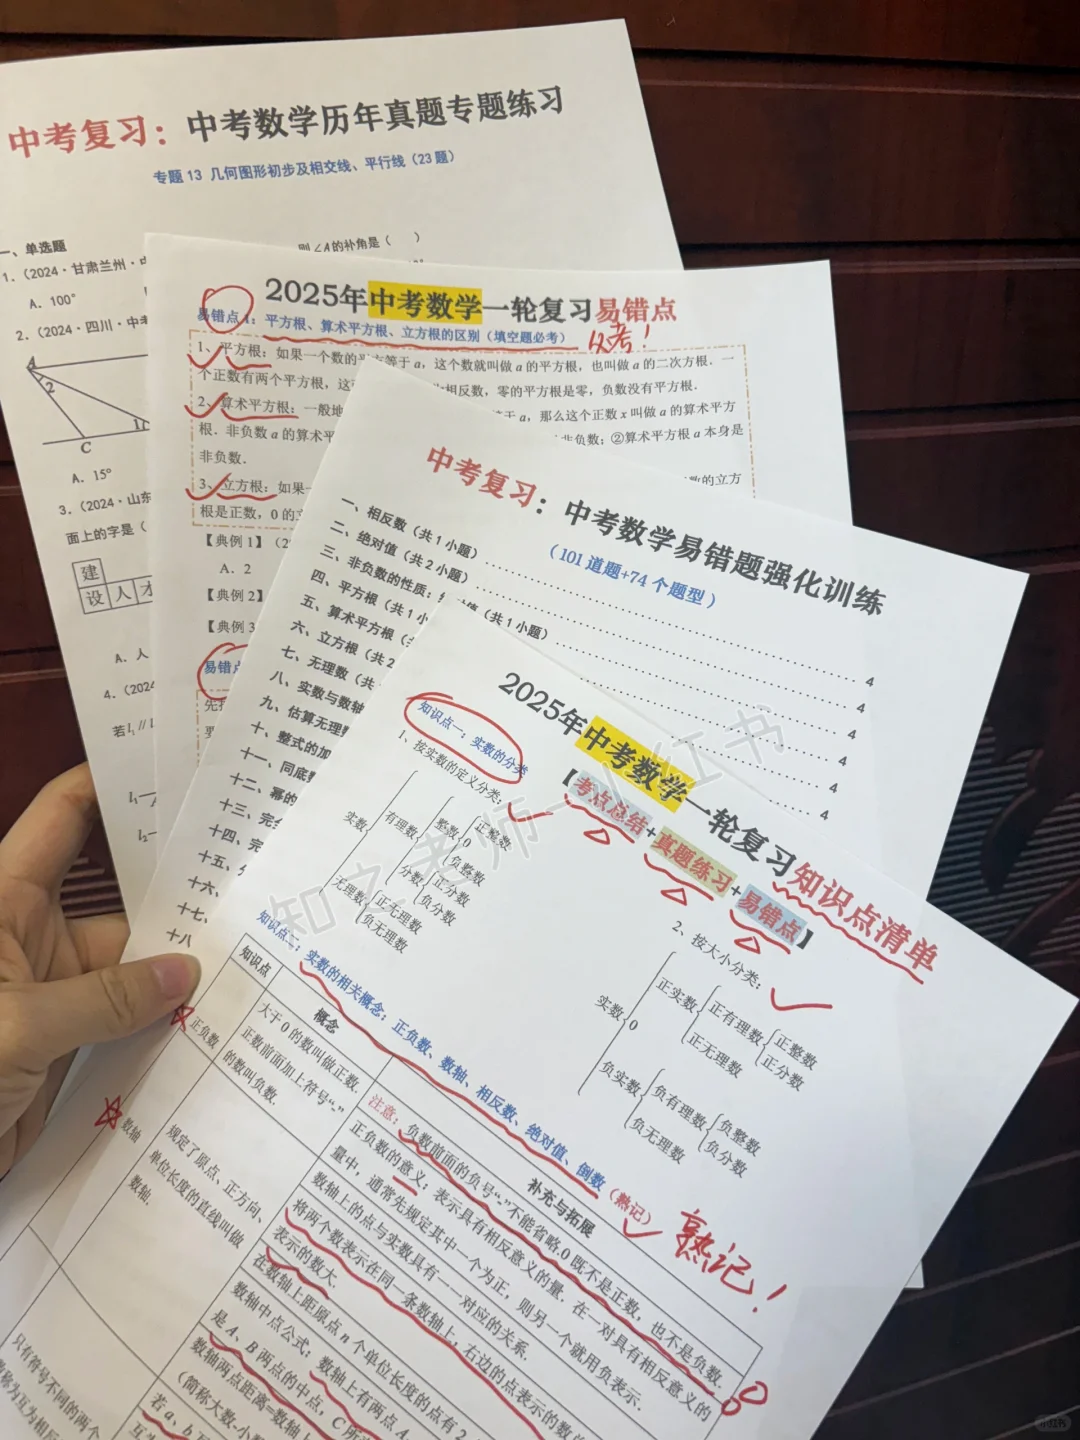 中考复习：中考数学历年真题专题练习
专题 13 几何图形初步及相交线、平行线（23 题）
一、单选题
1.（2024·甘肃兰州·中
则∠A的补角是（ ）
A. 100°
2.（2024·四川·中考
A
2
1
C
A. 15°
3.（2024·山东
面上的字是（
建
设 人 才
A. 人
4.（2024
若l₁∥l
l₁
l₂
2025年中考数学一轮复习易错点
易错点 1：平方根、算术平方根、立方根的区别（填空题必考）
必考！
1、平方根：如果一个数的平方等于 a，这个数就叫做 a 的平方根，也叫做 a 的二次方根．一
个正数有两个平方根，这
相反数，零的平方根是零，负数没有平方根．
2、算术平方根：一般地
于 a，那么这个正数 x 叫做 a 的算术平方
根．非负数 a 的算术平
非负数；②算术平方根 a 本身是
非负数．
3、立方根：如果一
数的立方
根是正数，0 的立
【典例 1】（2
A．2
【典例 2】
【典例 3
易错点
中考复习：中考数学易错题强化训练
（101 道题+74 个题型）
一、相反数（共 1 小题） 4
二、绝对值（共 2 小题） 4
三、非负数的性质：绝对值（共 1 小题） 4
四、平方根（共 1 小 4
五、算术平方根（共 4
六、立方根（共 2 4
七、无理数（共
八、实数与数轴
九、估算无理数
十、整式的加
十一、同底数
十二、幂的
十三、完全
十四、完
十五、
十六、
十七、
十八
2025年中考数学一轮复习知识点清单
【考点总结+真题练习+易错点】
知识点一：实数的分类
1、按实数的定义分类：
实数
有理数
整数
正整数
0
负整数
分数
正分数
负分数
无理数
正无理数
负无理数
2、按大小分类：
实数
正实数
正有理数
正整数
正分数
正无理数
0
负实数
负有理数
负整数
负分数
负无理数
知识点二：实数的相关概念：正负数、数轴、相反数、绝对值、倒数（熟记）
熟记！
知识点
概念
补充与拓展
正负数
大于 0 的数叫做正数.
正数前面加上符号“-”
的数叫负数.
注意：负数前面的负号“-”不能省略.0 既不是正数，也不是负数.
正负数的意义：表示具有相反意义的量．在一对具有相反意义的
量中，通常先规定其中一个为正，则另一个就用负表示.
数轴
规定了原点、正方向、
单位长度的直线叫做
数轴.
数轴上的点与实数具有一一对应的关系.
将两个数表示在同一条数轴上，右边的点表示的数
表示的数大.
在数轴上距原点 n 个单位长度的点有 2
数轴中点公式：数轴上有两点 A
是 A、B 两点的中点，C 所
数轴两点距离=数轴上
（简称大数-小
只有符号不同的两个
称为互为相反
若 a、b
互为
知之老师—小红书
小红书